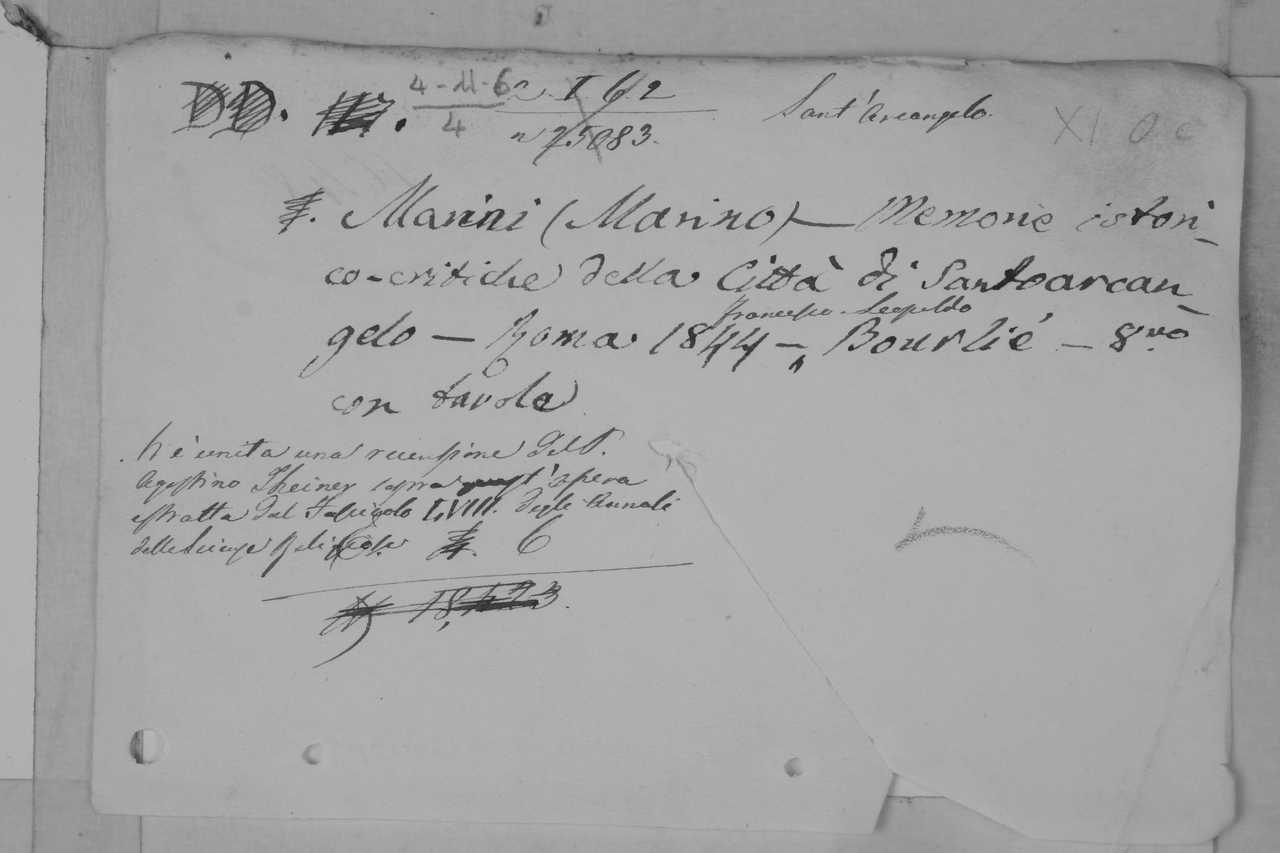 DD. 4-11-6 2 I 6 2 Sant'Arcangelo. XI
4 n 75083.
Marini (Marino) — Memorie istori-
co-critiche della Città di Santoarcan-
gelo — Roma 1844 —, Francesco Leopoldo Bourlié — 8vo
con tavole
Vi è unita una recensione del P.
Agostino Theiner sopra quest'opera
estratta dal Fascicolo LVIII. degli Annali
delle Scienze Religiose 6
18,423.